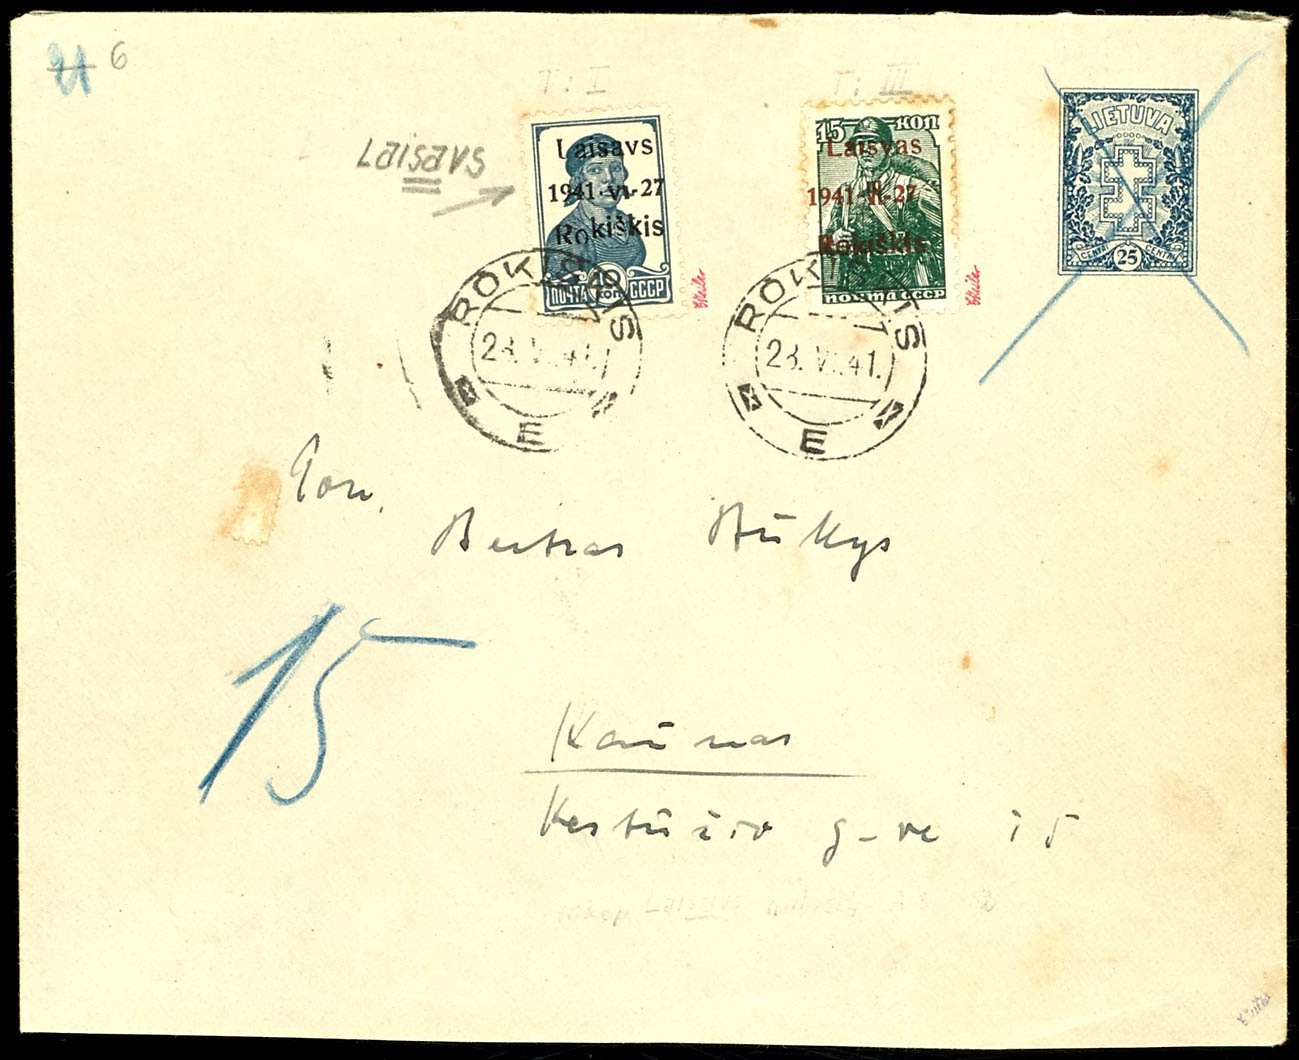 21 6
T: I
T: III
Laisavs
Laisavs
1941-VI-27
Rokiškis
10 КОП
ПОЧТА СССР
15 КОП
Laisvas
1941-VI-27
Rokiškis
ПОЧТА СССР
LIETUVA
CENTAI 25 CENTAI
ROKIŠKIS
28. VI. 41.
E
ROKIŠKIS
28. VI. 41.
E
Pon.
15
Kaunas
Kestučio g-vė 15
10 kop Laisavs